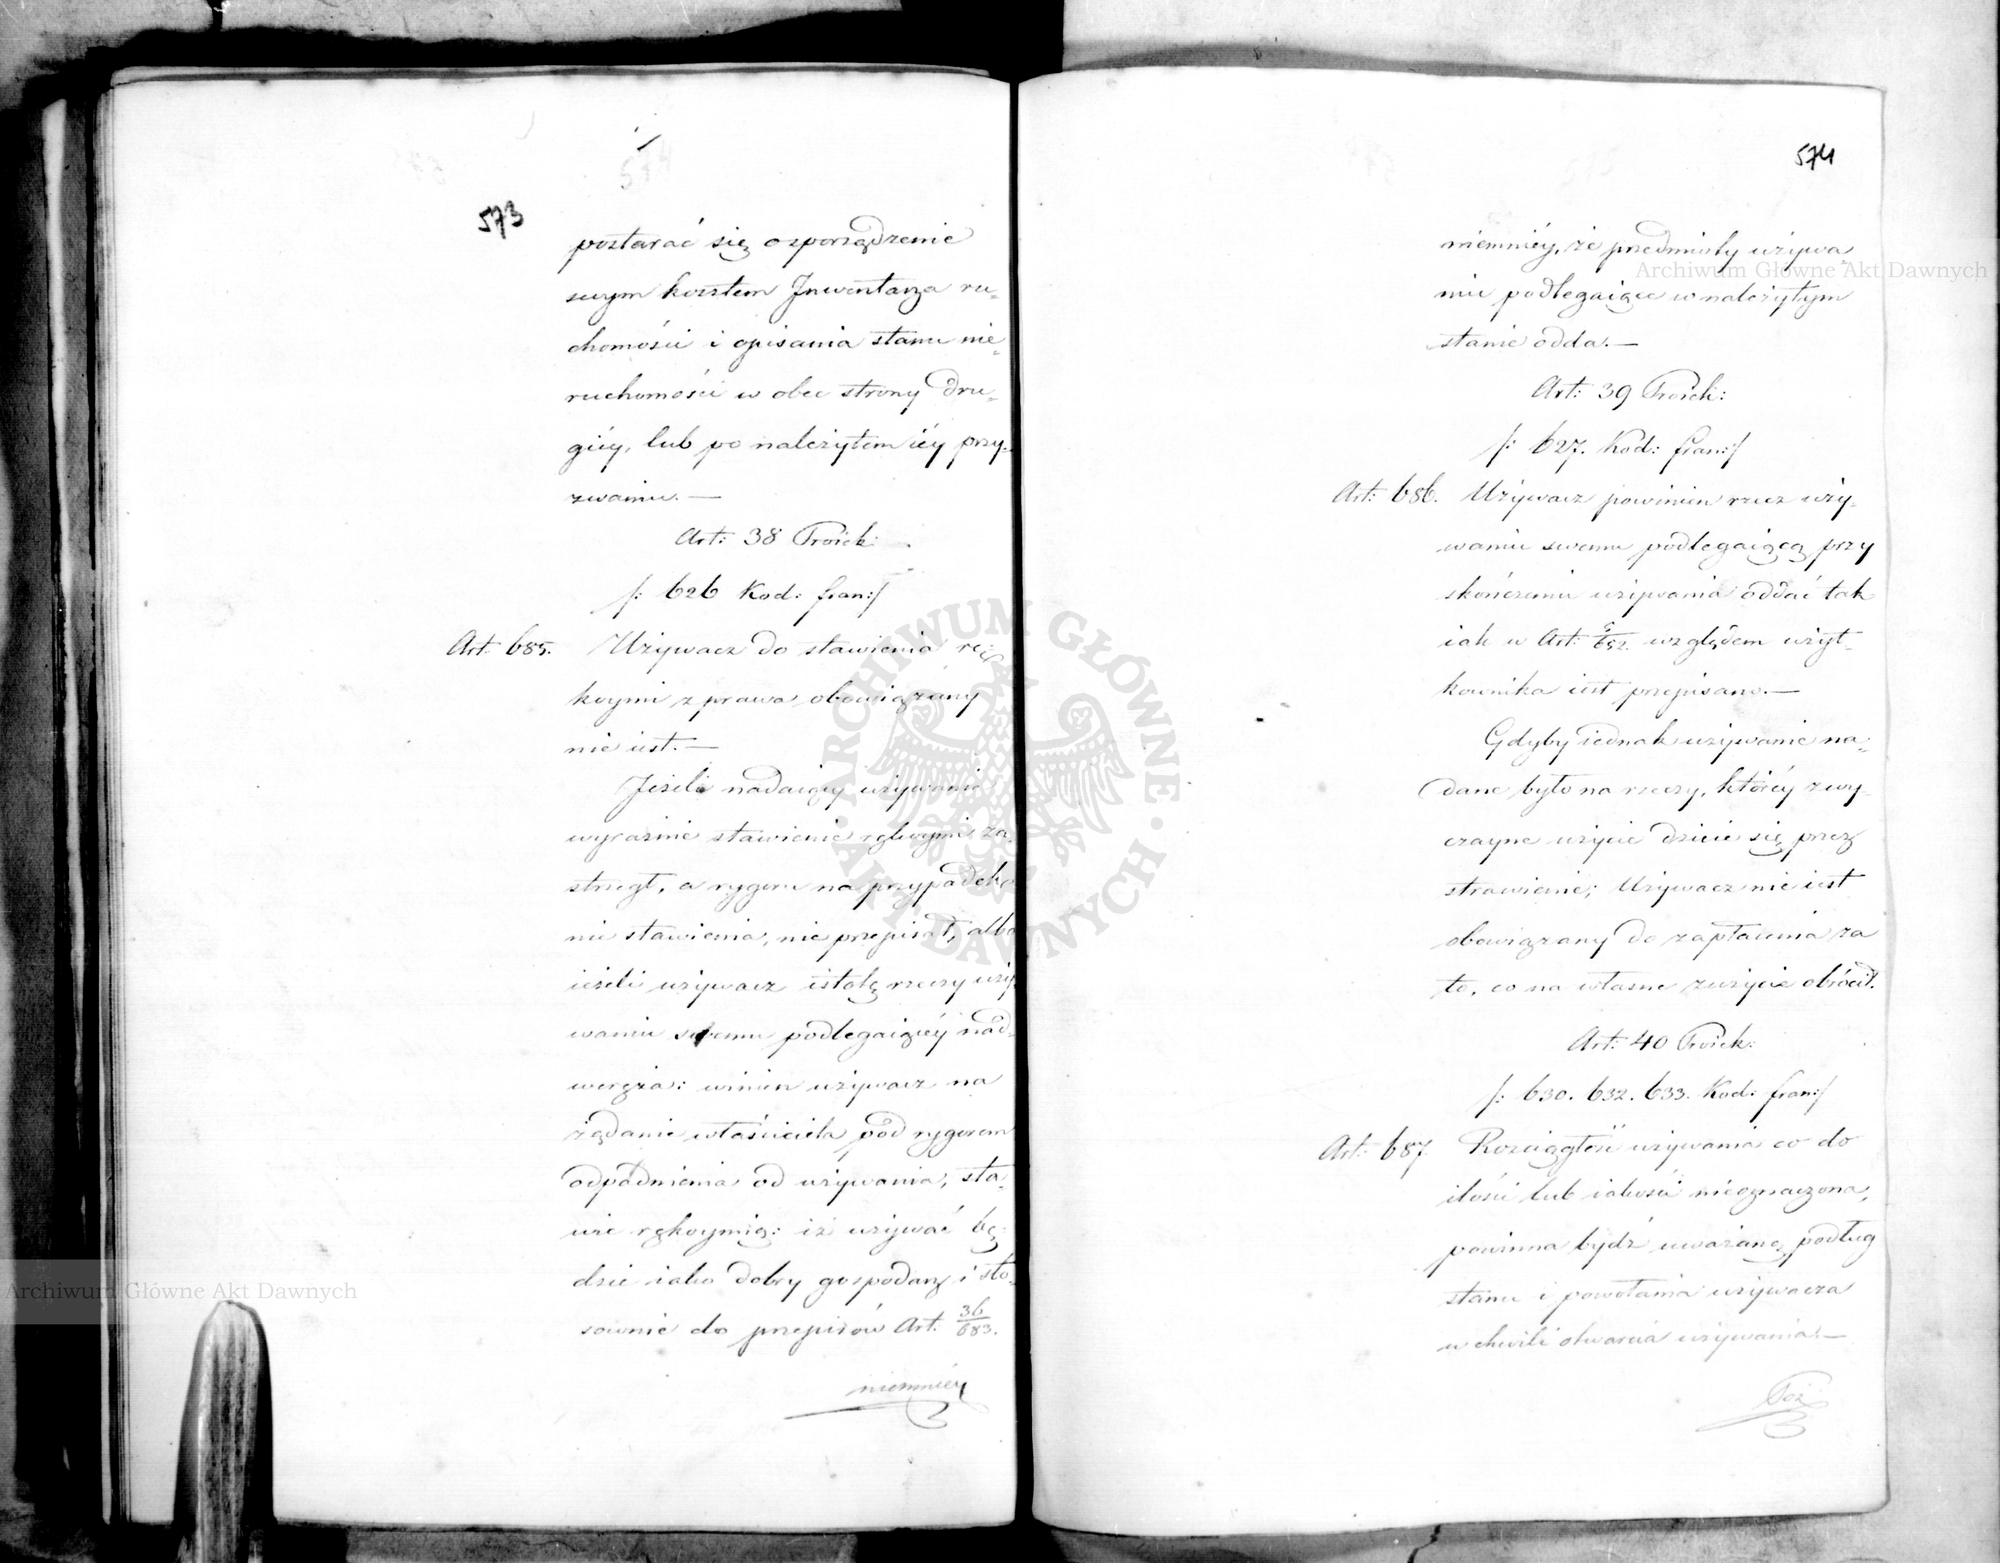 573
postarać się o sporządzenie
swym kosztem Inwentarza ru„
chomości i opisania stanu nie„
ruchomości w obec strony dru„
giéy, lub po należytem iéy przy„
zwaniu.—
Art: 38 Proiek:
/: 626 Kod: fran:/
Art: 685. Używacz do stawienia rę„
koymi z prawa obowiązany
nie iest.—
Jeżeli nadaiący używanie
wyraźnie stawienie rękoymi za„
strzegł, a rygoru na przypadek
nie stawienia, nie przepisał, albo
ieżeli używacz istotę rzeczy uży„
waniu swemu podlegaiącéy nad„
weręża: winien używacz na
żądanie właściciela pod rygorem
odpadnienia od używania, sta„
wić rękoymią: iż używać bę„
dzie iako dobry gospodarz i sto„
sownie do przepisów Art: 36/683.
niemniéy
574
niemniéy, że przedmioty używa„
niu podlegaiące w należytym
stanie odda.—
Art: 39 Proiek:
/: 627. Kod: fran:/
Art: 686. Używacz powinien rzecz uży„
waniu swemu podlegaiącą przy
skończeniu używania oddać tak
iak w Art: 5/652. względem użyt„
kownika iest przepisano.—
Gdyby iednak używanie na„
dane było na rzeczy, któréy zwy„
czayne użycie dzieie się przez
strawienie; Używacz nie iest
obowiązany do zapłacenia za
to, co na własne zużycie obrócił.
Art: 40 Proiek:
/: 630. 632. 633. Kod: fran:/
Art: 687. Rozciągłość używania co do
ilości lub iakości nieoznaczona,
powinna bydź uważaną podług
stanu i powołania używacza
w chwili otwarcia używania.—
Toż
Archiwum Główne Akt Dawnych
Archiwum Główne Akt Dawnych
ARCHIWUM GŁÓWNE · AKT DAWNYCH ·